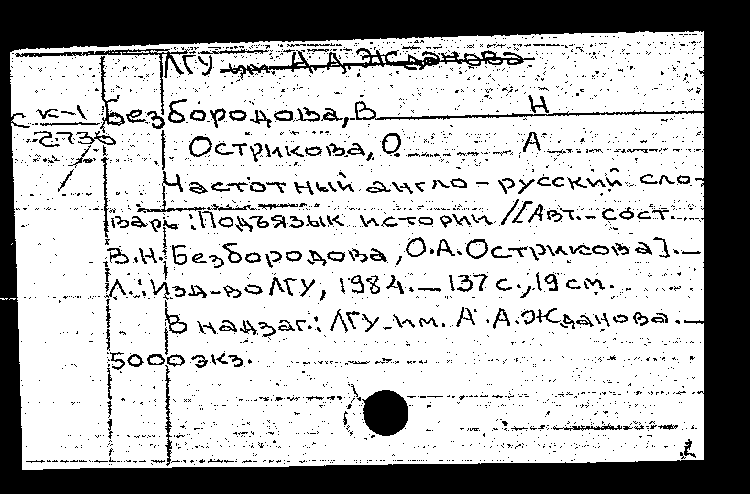 ЛГУ им. А.А. Жданова
с К-1 Безбородова, В Н
2736
Острикова, О А
Частотный англо-русский сло-
варь : Подъязык истории /[Авт.-сост.
В.Н. Безбородова, О.А. Острикова].—
Л.: Изд-во ЛГУ, 1984.— 137 с., 19 см.
В надзаг.: ЛГУ им. А.А. Жданова.—
5000 экз.